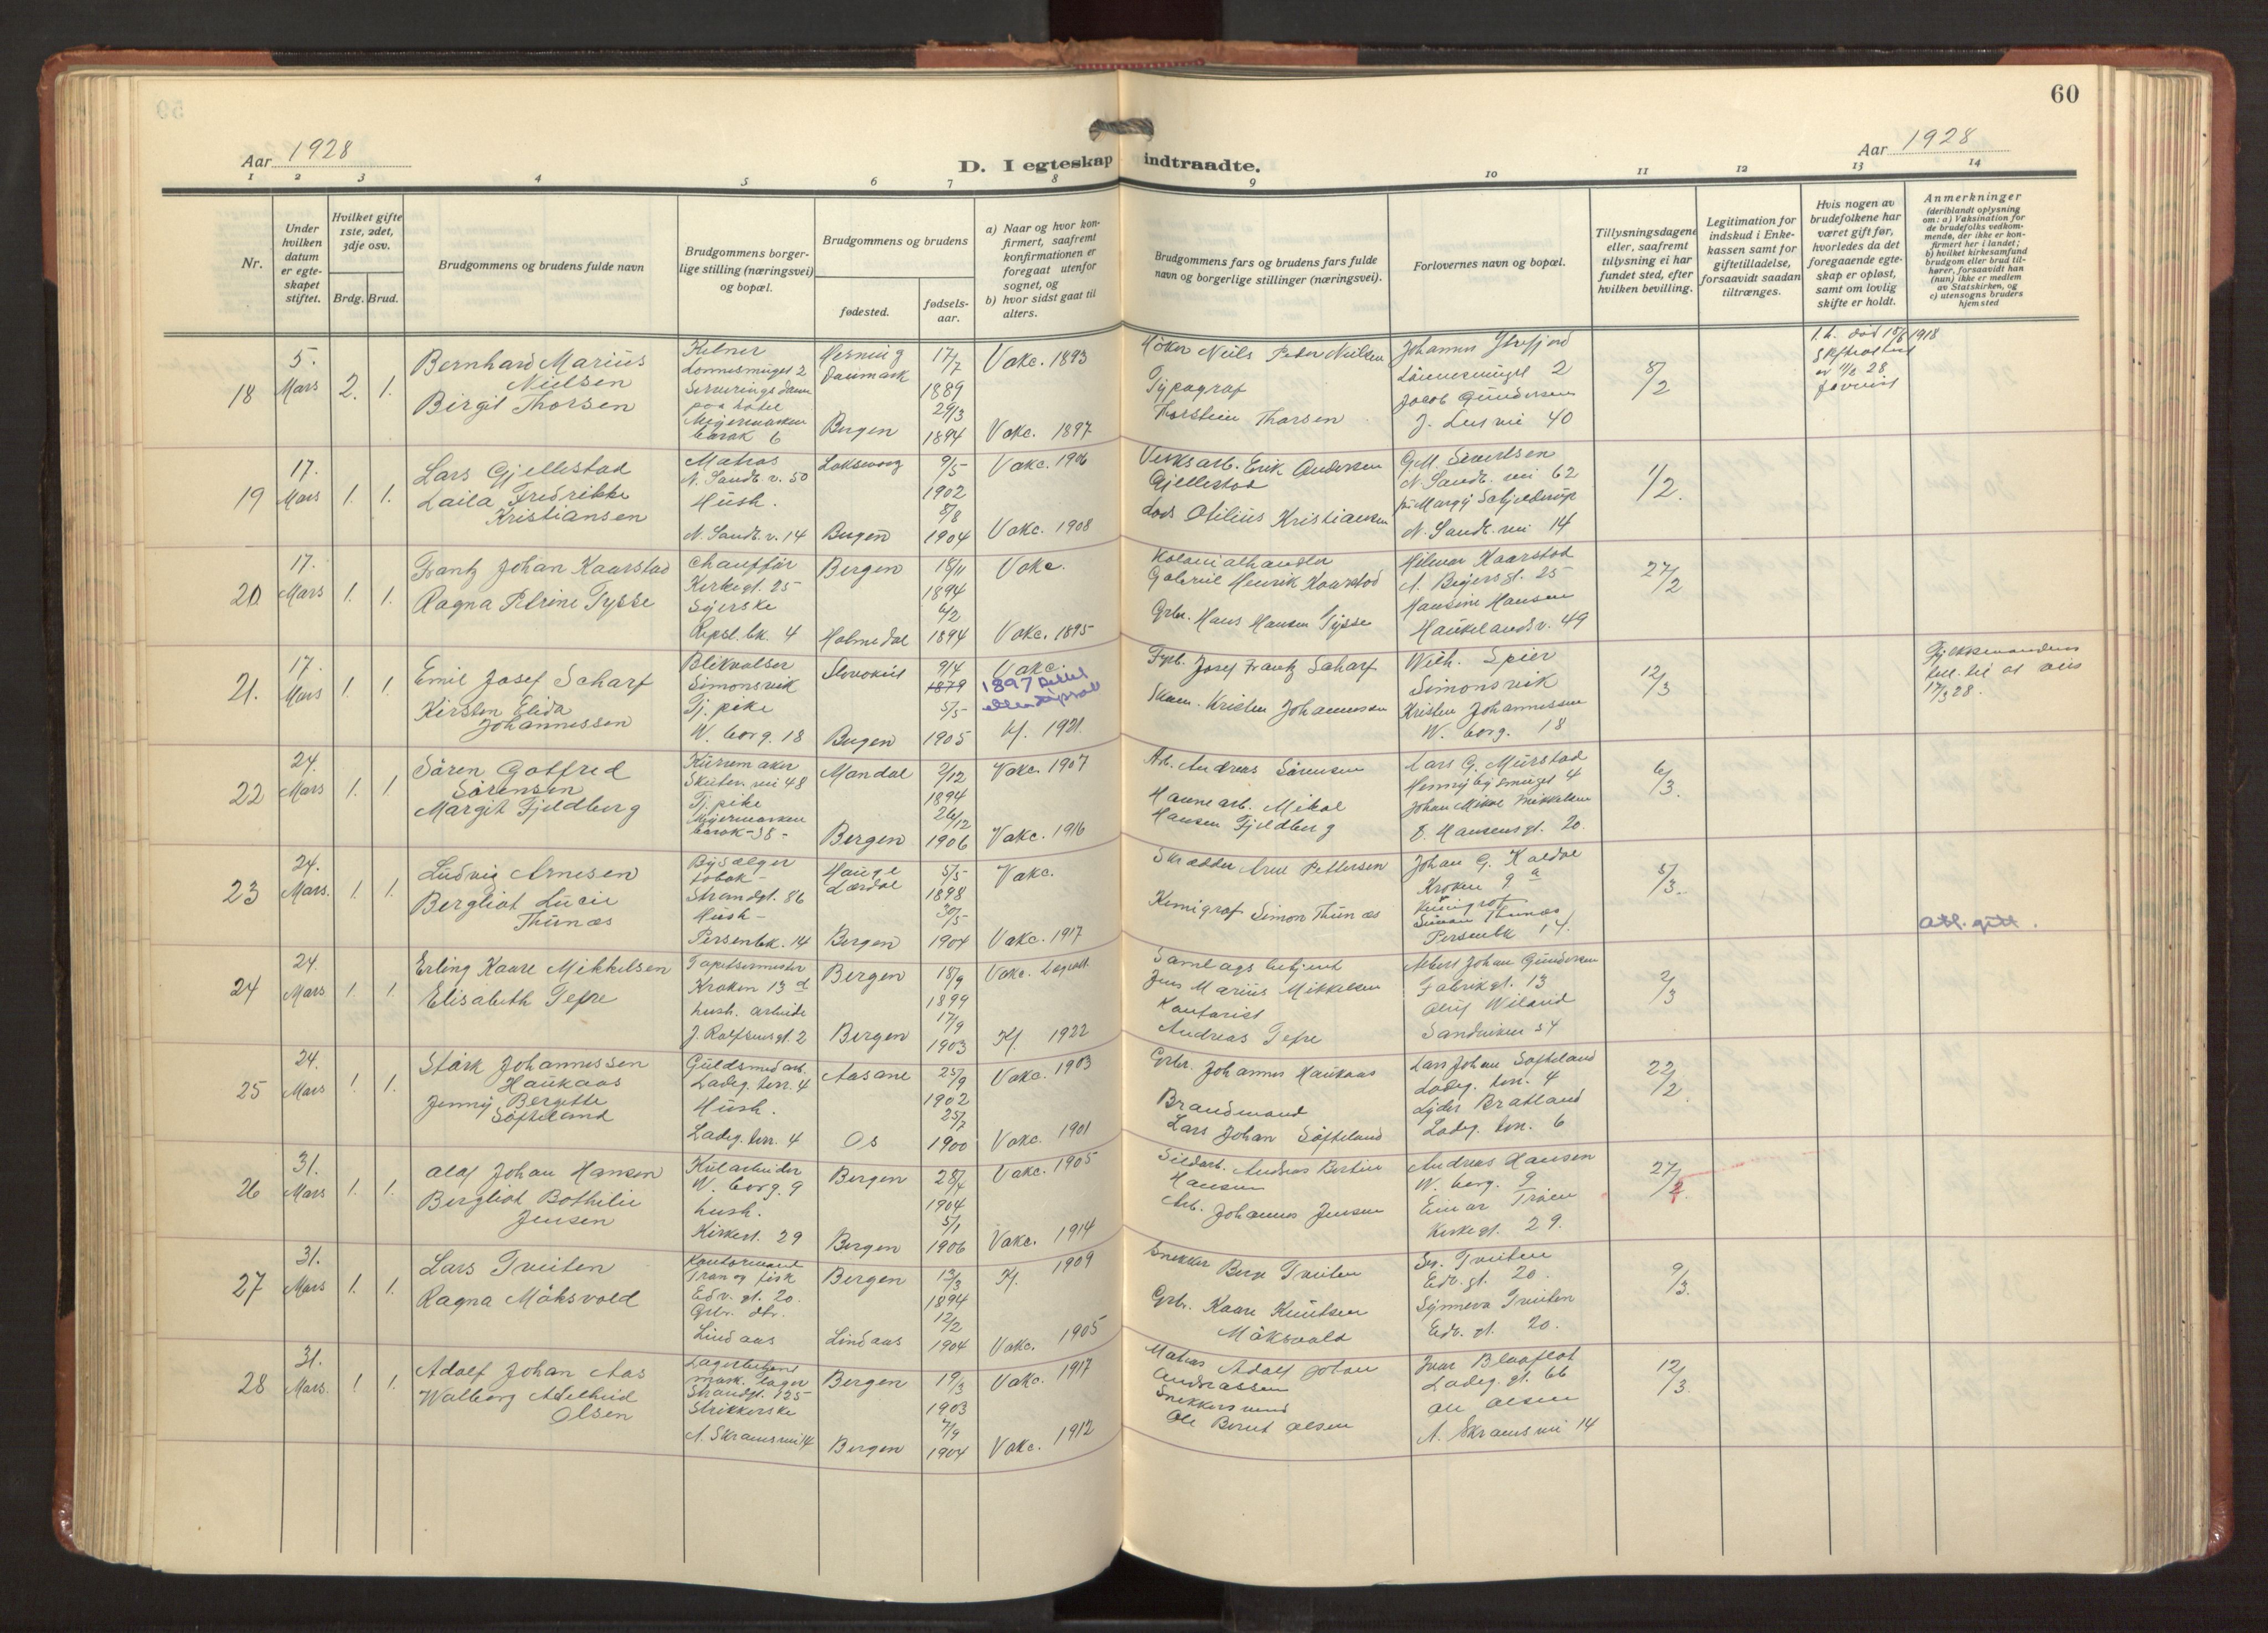 60
Aar 1928
D. I egteskap indtraadte.
Aar 1928
1 2 3 4 5 6 7 8 9 10 11 12 13 14
Nr.
Under
hvilken
datum
er egte-
skapet
stiftet.
Hvilket gifte
1ste, 2det,
3dje osv.
Brdg. Brud.
Brudgommens og brudens fulde navn
Brudgommens borger-
lige stilling (næringsvei)
og bopæl.
Brudgommens og brudens
fødested.
fødsels-
aar.
a) Naar og hvor kon-
firmert, saafremt
konfirmationen er
foregaat utenfor
sognet, og
b) hvor sidst gaat til
alters.
Brudgommens fars og brudens fars fulde
navn og borgerlige stillinger (næringsvei).
Forlovernes navn og bopæl.
Tillysningsdagene
eller, saafremt
tillysning ei har
fundet sted, efter
hvilken bevilling.
Legitimation for
indskud i Enke-
kassen samt for
giftetilladelse,
forsaavidt saadan
tiltrænges.
Hvis nogen av
brudefolkene har
været gift før,
hvorledes da det
foregaaende egte-
skap er opløst,
samt om lovlig
skifte er holdt.
Anmerkninger
(deriblandt oplysning
om: a) Vaksination for
de brudefolks vedkom-
mende, der ikke er kon-
firmert her i landet;
b) hvilket kirkesamfund
brudgom eller brud til-
hører, forsaavidt han
(hun) ikke er medlem
av Statskirken, og
c) utensogns bruders
hjemsted
18 5. Mars 2. 1.
Bernhard Marius
Nielsen
Birgit Thorsen
Kelner
Lonnesmuget 2
Herning
Danmark
17/7
1889
Vakc. 1893
29/3
Bergen 1894 Vakc. 1897
Høker Niels Peder Nielsen
Typograf
Thorstein Thorsen
Johannes Ytrefjord
Lönnesmuget 2
Jacob Gundersen
J. Lies vei 40
8/2
19 17. Mars 1. 1.
Lars Gjellestad
Laila Fredrikke
Kristiansen
Matros
N. Sandv. v. 50
Hush.
N. Sandv. v. 14
Laksevaag 9/5 1902 Vakc. 1906
Bergen 8/8 1904 Vakc. 1908
Verksarb. Erik Andersen
Gjellestad
Lods Otilius Kristiansen
G.M. Sivertsen
N. Sandv. vei 62
Margy Schjelderup
N. Sandv. vei 14
1/2.
20 17. Mars 1. 1.
Frantz Johan Kaarstad
Ragna Petrine Tysse
Chauffør
Kirkegt. 25
Syerske
Repsl. bk. 4
Bergen 18/11 1894 Vakc.
Holmedal 6/2 1894 Vakc. 1895
Kolonialhandler
Gabriel Henrik Kaarstad
Grbr. Hans Hansen Tysse
Hilmar Kaarstad
A. Beyersgt. 25
Hansine Hansen
Haukelandsv. 49
27/2
21. 17. Mars 1. 1.
Emil Josef Scharf
Kirsten Elida
Johannessen
Blikvalser
Simonsvik
Tj. pike
W. borg. 18
9/4 1879 Vakc.
1897
Bergen 5/5 1905 Kf. 1921.
Fyrb. Josef Frantz Scharf
Kristen Johannessen
Wilh. Spier
Simonsvik
Kristen Johannessen
W. borg. 18
12/3
Fylkesmandens
22 24. Mars 1. 1.
Sören Gotfred
Sörensen
Margit Fjeldberg
Kurvmaker
Skutev. vei 48
Tj. pike
Meyermarken
barak - 38 -
Mandal 2/12 1894 Vakc. 1907
Bergen 26/12 1906 Vakc. 1916
Arb. Andreas Sörensen
Havnearb. Mikal
Hansen Fjeldberg
Lars G. Murstad
Johan Mikal Mikkelsen
E. Hansensgt. 20.
6/3.
23 24. Mars. 1. 1.
Ludvig Arnesen
Bergliot Lucie
Thunæs
Bysælger
tobak -
Strandgt. 86
Hush -
Persenbk. 14
Hauge
Lærdal 5/5 1898 Vakc.
Bergen 30/5 1904 Vakc. 1917
Skrædder Arne Pettersen
Kemigraf Simon Thunæs
Johan G. Kaldal
Kroken 9 a
Kemigraf
Simon Thunæs
Persenbk 14.
5/3.
Att. gitt.
24 24. Mars 1. 1.
Erling Kaare Mikkelsen
Elisabeth Tefre
Tapetsermester
Kroken 13 d
hush. arbeide
J. Rolfsensgt. 2
Bergen 18/9 1899 Vakc.
Bergen 17/9 1903 Kf. 1922
Samlagsbetjent
Jens Marius Mikkelsen
Kontorist
Andreas Tefre
Albert Johan Gundersen
Fabrikgt. 13
Oluf Wiland
Sandviken 54
2/3
25 24. Mars 1. 1.
Störk Johannessen
Haukaas
Jenny Bergitte
Söfteland
Guldsmedarb.
Ladeg. terr. 4
Hush.
Ladeg. terr. 4
Aasane 25/9 1902 Vakc. 1903
Os 25/7 1900 Vakc. 1901
Grbr. Johannes Haukaas
Brandmand
Lars Johan Söfteland
Lars Johan Söfteland
Ladeg. terr. 4
Lyder Bratland
Ladeg. terr. 6
22/2.
26 31. Mars 1. 1.
Olaf Johan Hansen
Bergliot Bothilie
Jensen
Kularbeider
W. borg. 9
hush.
Kirkegt. 29
Bergen 28/4 1904 Vakc. 1905
Bergen 5/1 1906 Vakc. 1914
Sildarb. Andreas Bertin
Hansen
Arb. Johannes Jensen
Andreas Hansen
W. borg. 9
Einar Troen
Kirkegt. 29.
27/2
27 31. Mars 1. 1.
Lars Tveiten
Ragna Möksvold
Kontormand
Tran og fisk
Edv. gt. 20.
Grbr. dtr.
Lindaas
Bergen 13/3 1894 Kf. 1909
Lindaas 12/2 1904 Vakc. 1905
Snekker Berge Tveiten
Grbr. Kaare Knutsen
Möksvold
Ser. Tveiten
Edv. gt. 20.
Synneva Tveiten
Edv. gt. 20.
9/3.
28 31. Mars. 1. 1.
Adolf Johan Aas
Walborg Adelheid
Olsen
Lagerbetjent
mask. lager
Strandgt. 125
Strikkerske
A. Skramsvei 14
Bergen 19/3 1903 Vakc. 1917
Bergen 7/9 1904 Vakc. 1912
Matros Adolf Johan
Andreassen
Snekkersvend
Ole Bernt Olsen
Ivar Blaaflat
Ladeg. gt. 66
Ole Olsen
A. Skrams vei 14
12/3.